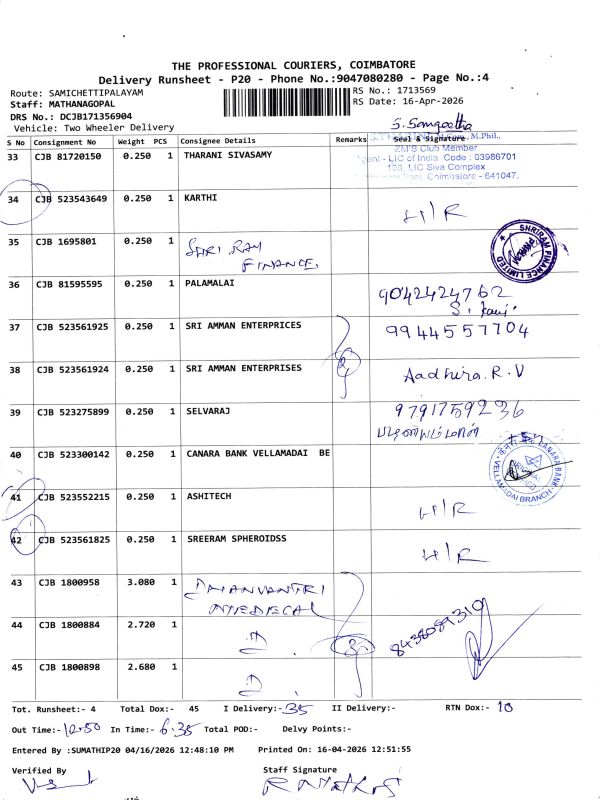 THE PROFESSIONAL COURIERS, COIMBATORE
Delivery Runsheet - P20 - Phone No.:9047080280 - Page No.:4
Route: SAMICHETTIPALAYAM
RS No.: 1713569
Staff: MATHANAGOPAL
RS Date: 16-Apr-2026
DRS No.: DCJB171356904
Vehicle: Two Wheeler Delivery
S. Sangeetha
S No Consignment No Weight PCS Consignee Details Remarks Seal & Signature
M.Phil.,
33 CJB 81720150 0.250 1 THARANI SIVASAMY
ZM'S Club Member
Agent - LIC of India Code : 03986701
LIC Siva Complex
Coimbatore - 641047.
34 CJB 523543649 0.250 1 KARTHI H/R
35 CJB 1695801 0.250 1 SHRI RAM FINANCE.
SHRIRAM FINANCE LIMITED
36 CJB 81595595 0.250 1 PALAMALAI 9042424762
37 CJB 523561925 0.250 1 SRI AMMAN ENTERPRICES 9944557704
38 CJB 523561924 0.250 1 SRI AMMAN ENTERPRISES Aadhira. R. V
39 CJB 523275899 0.250 1 SELVARAJ 9791759236
40 CJB 523300142 0.250 1 CANARA BANK VELLAMADAI BE
CANARA BANK
VELLAMADAI BRANCH
41 CJB 523552215 0.250 1 ASHITECH H/R
42 CJB 523561825 0.250 1 SREERAM SPHEROIDSS H/R
43 CJB 1800958 3.080 1 DHANVANTRI
44 CJB 1800884 2.720 1 8438089310
45 CJB 1800898 2.680 1
Tot. Runsheet:- 4 Total Dox:- 45 I Delivery:- 35 II Delivery:- RTN Dox:- 10
Out Time:- 12.50 In Time:- 6.35 Total POD:- Delvy Points:-
Entered By :SUMATHIP20 04/16/2026 12:48:10 PM Printed On: 16-04-2026 12:51:55
Verified By Staff Signature